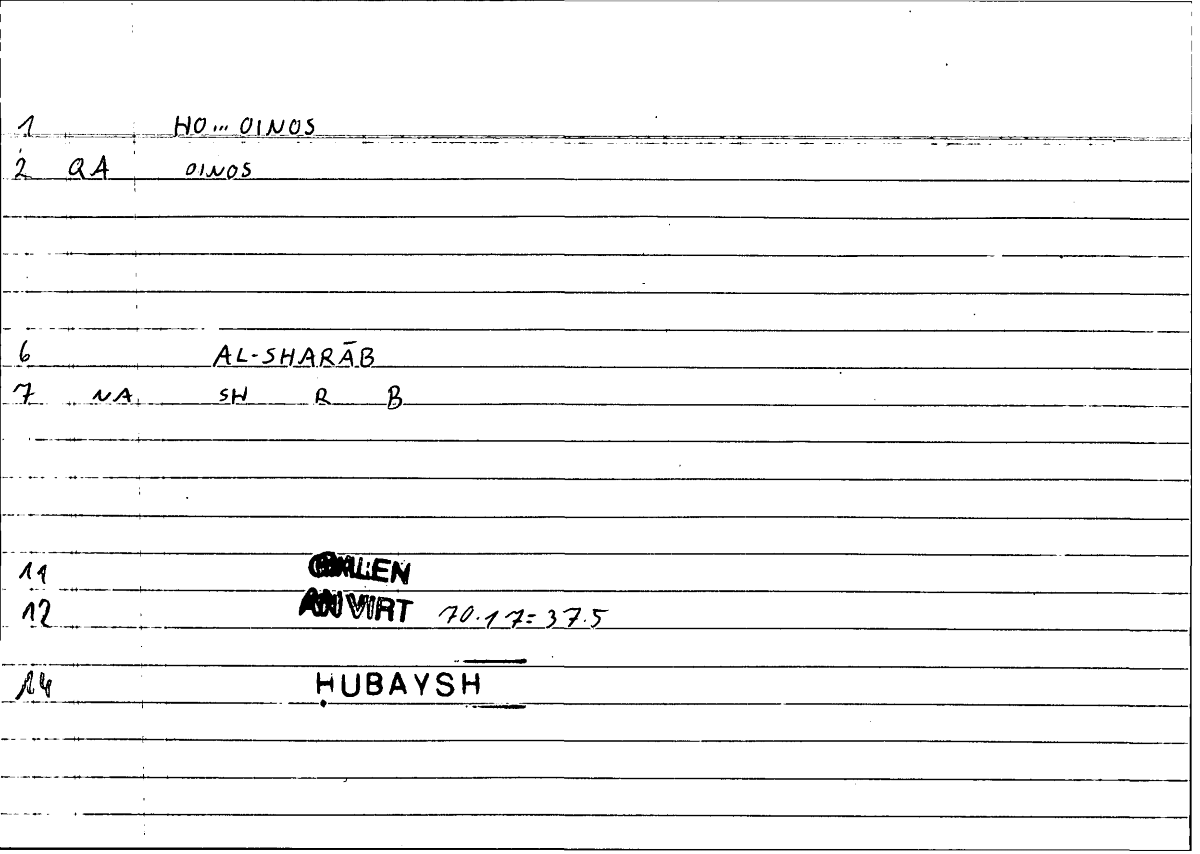 1 HO... OINOS
2 QA OINOS
6 AL-SHARĀB
7 NA SH R B
11 GALEN
12 AN VIRT 70.17=37.5
14 ḤUBAYSH